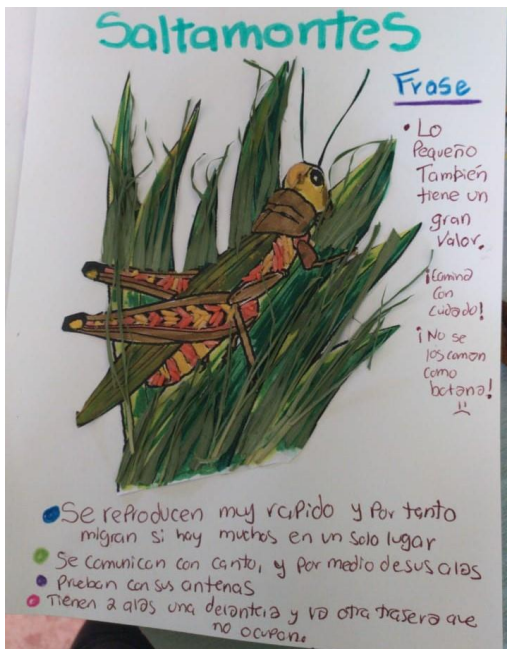 Saltamontes
Frase
• Lo
Pequeño
También
tiene un
gran
Valor.
¡Camina
con
cuidado!
¡No se
los coman
como
botana!
Se reproducen muy rapido y Por tanto
migran si hay muchos en un solo lugar
Se comunican con canto, y por medio de sus alas
Prueban con sus antenas
Tienen 2 alas una delantera y otra trasera que
no ocupan.